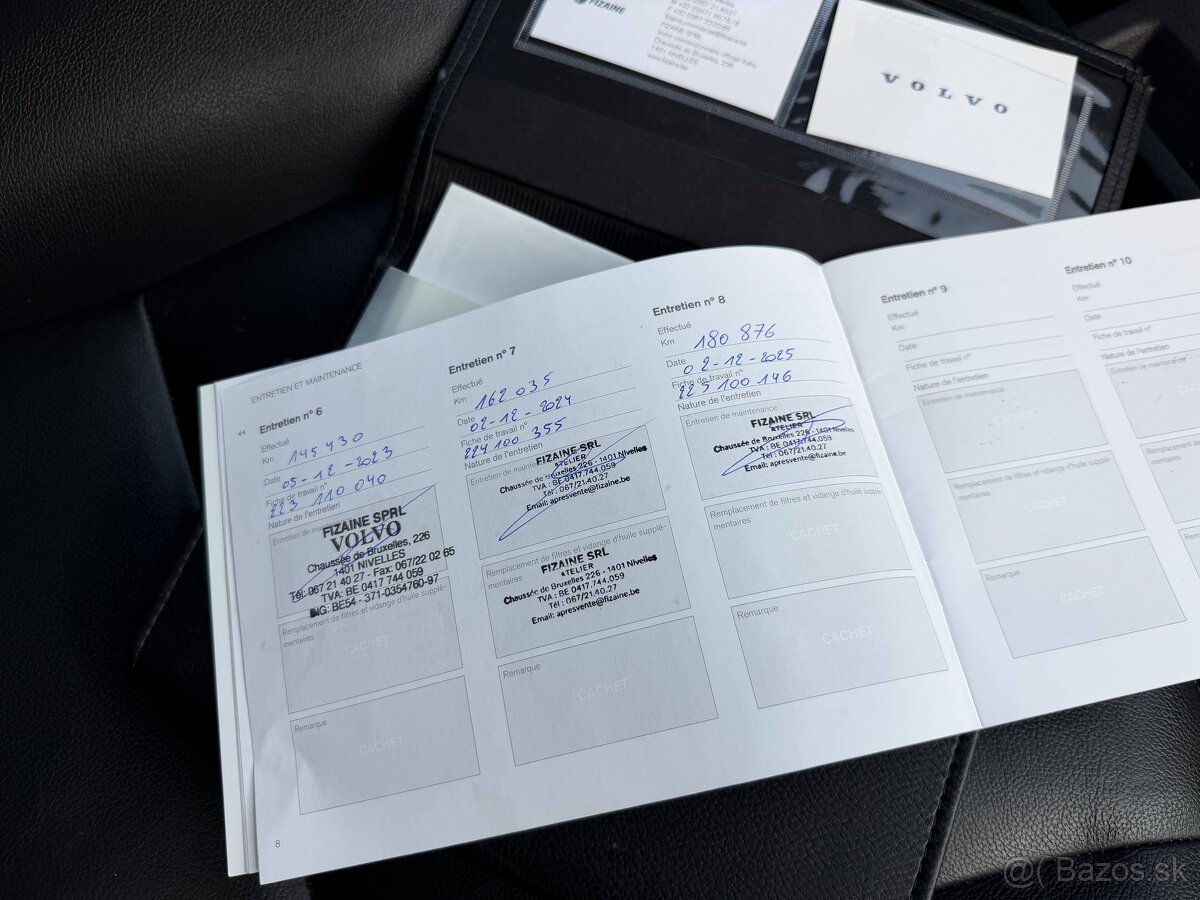 FIZAINE
FIZAINE SPRL
Votre concessionnaire officiel Volvo
Chaussée de Bruxelles, 226
1401 NIVELLES
www.fizaine.be
VOLVO
ENTRETIEN ET MAINTENANCE
Entretien n° 6
Effectué
Km 145 430
Date 05-12-2023
Fiche de travail n°
223 110 040
Nature de l'entretien
Entretien de maintenance
FIZAINE SPRL
VOLVO
Chaussée de Bruxelles, 226
1401 NIVELLES
Tél: 067 21 40 27 - Fax: 067/22 02 65
TVA: BE 0417 744 059
ING: BE54 - 371-0354760-97
Remplacement de filtres et vidange d'huile supplé-
mentaires
CACHET
Remarque
CACHET
8
Entretien n° 7
Effectué
Km 162 035
Date 02-12-2024
Fiche de travail n°
224100 355
Nature de l'entretien
Entretien de maintenance
FIZAINE SRL
ATELIER
Chaussée de Bruxelles 226 - 1401 Nivelles
TVA : BE 0417.744.059
Tél : 067/21.40.27
Email: apresvente@fizaine.be
Remplacement de filtres et vidange d'huile supplé-
mentaires
FIZAINE SRL
ATELIER
Chaussée de Bruxelles 226 - 1401 Nivelles
TVA : BE 0417.744.059
Tél : 067/21.40.27
Email: apresvente@fizaine.be
Remarque
CACHET
Entretien n° 8
Effectué
Km 180 876
Date 02-12-2025
Fiche de travail n°
225100 146
Nature de l'entretien
Entretien de maintenance
FIZAINE SRL
ATELIER
Chaussée de Bruxelles 226 - 1401 Nivelles
TVA : BE 0417.744.059
Tél : 067/21.40.27
Email: apresvente@fizaine.be
Remplacement de filtres et vidange d'huile supplé-
mentaires
CACHET
Remarque
CACHET
Entretien n° 9
Effectué
Km
Date
Fiche de travail n°
Nature de l'entretien
Entretien de maintenance
CACHET
Remplacement de filtres et vidange d'huile supplé-
mentaires
CACHET
Remarque
CACHET
Entretien n° 10
Effectué
Km
Date
Fiche de travail n°
Nature de l'entretien
Entretien de maintenance
Remarque
@( Bazos.sk